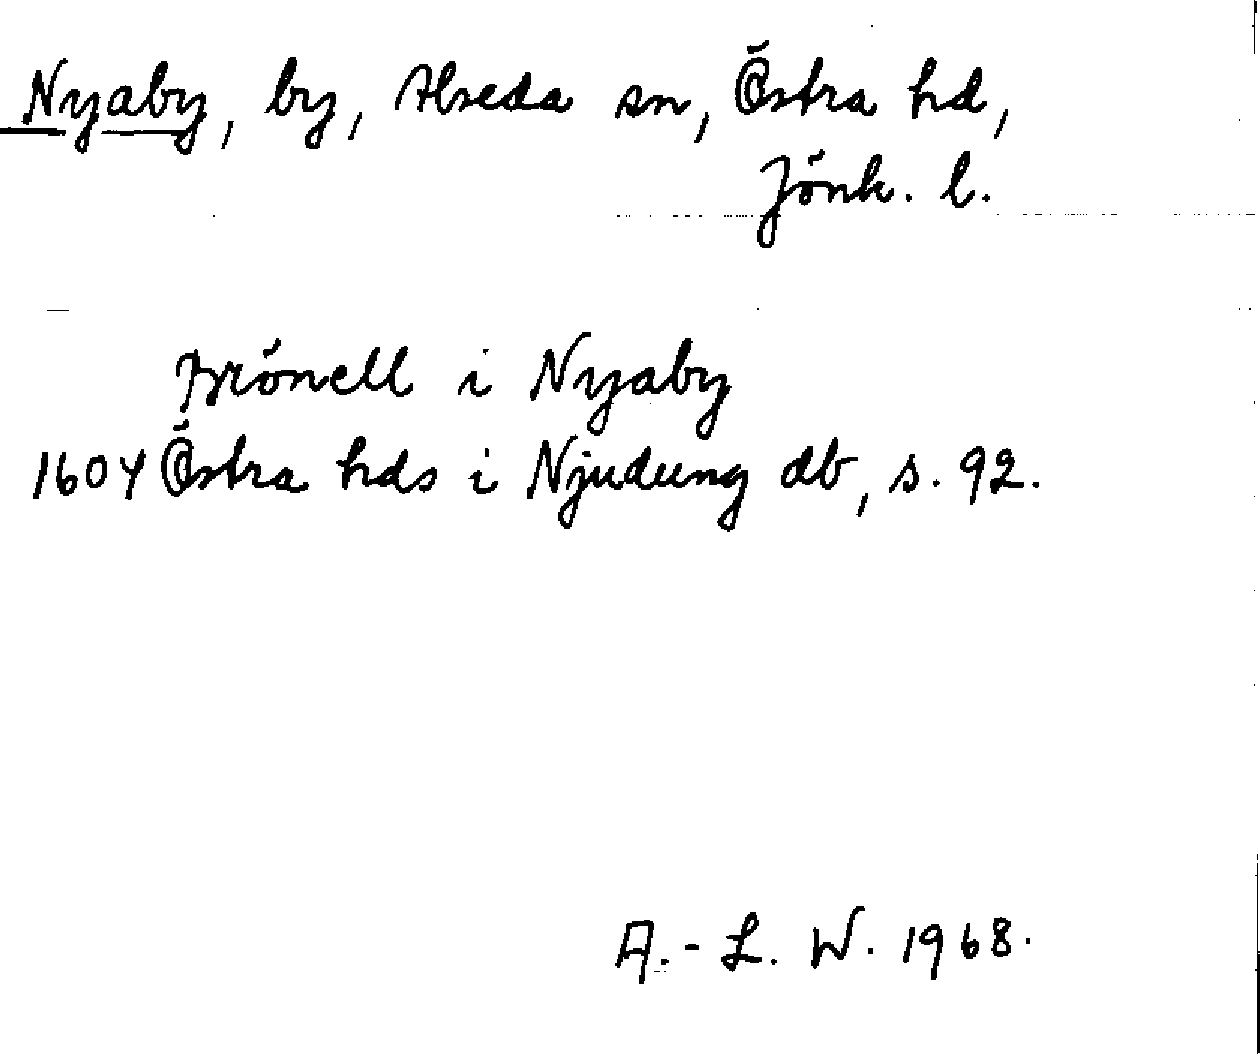 Nyaby, by, Alseda sn, Östra hd,
Jönk. l.
Brönell i Nyaby
1604 Östra hds i Njudung db, s. 92.
A.-L. W. 1968.